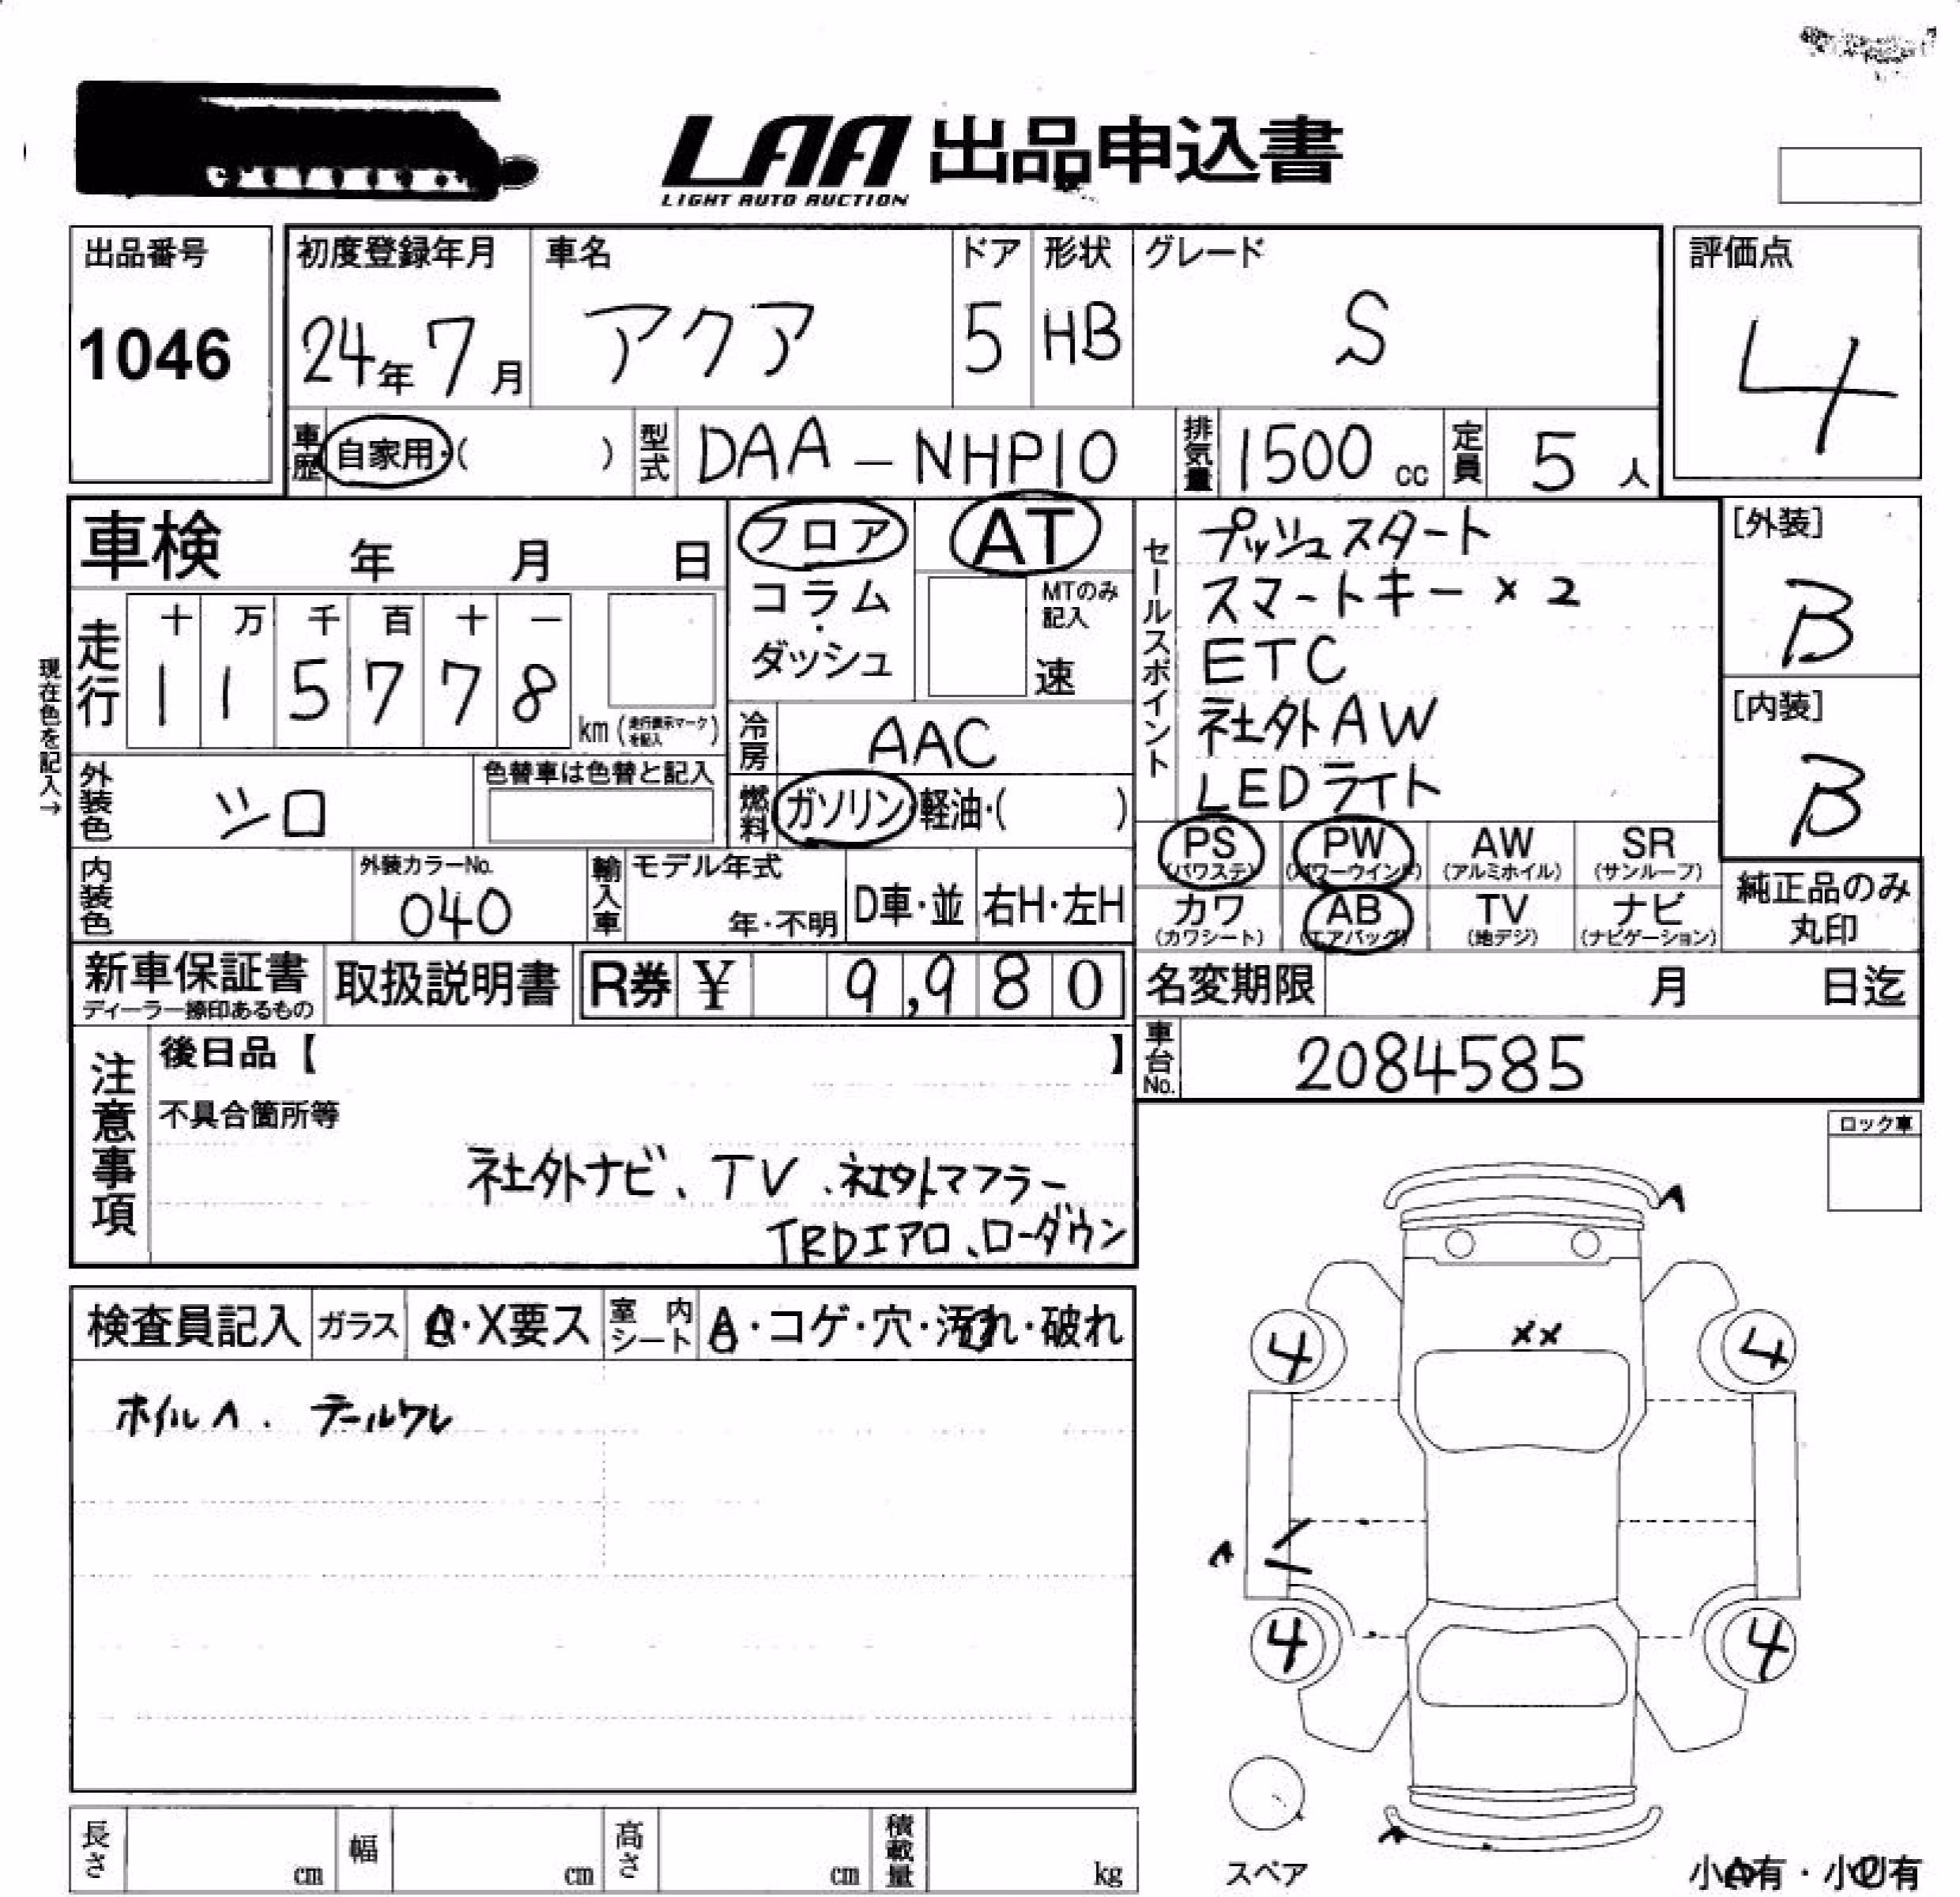 LAA 出品申込書
LIGHT AUTO AUCTION
出品番号
1046
初度登録年月
24年 7月
車名
アクア
ドア
5
形状
HB
グレード
S
評価点
4
車歴 自家用・( )
型式 DAA-NHP10
排気量 1500 cc
定員 5 人
車検 年 月 日
フロア
コラム・ダッシュ
AT
MTのみ記入
速
セールスポイント
プッシュスタート
スマートキー×2
ETC
社外AW
LEDライト
[外装]
B
[内装]
B
現在色を記入→
走行
十 万 千 百 十 一
1 1 5 7 7 8
km (走行表示マークを記入)
冷房 AAC
外装色 シロ
色替車は色替と記入
燃料 ガソリン・軽油・( )
PS (パワステ)
PW (パワーウインド)
AW (アルミホイル)
SR (サンルーフ)
カワ (カワシート)
AB (エアバッグ)
TV (地デジ)
ナビ (ナビゲーション)
純正品のみ
丸印
内装色
外装カラーNo.
040
輸入車
モデル年式
年・不明
D車・並
右H・左H
新車保証書
ディーラー捺印あるもの
取扱説明書
R券 ¥ 9,980
名変期限 月 日迄
車台No. 2084585
注意事項
後日品【 】
不具合箇所等
社外ナビ、TV、社外マフラー
TRDエアロ、ローダウン
ロック車
検査員記入
ガラス
・X要ス
室内シート
A・コゲ・穴・汚れ・破れ
ホイルA. テールワレ
A
XX
4 4
A
4 4
A
スペア
長さ cm
幅 cm
高さ cm
積載量 kg
小A有・小U有